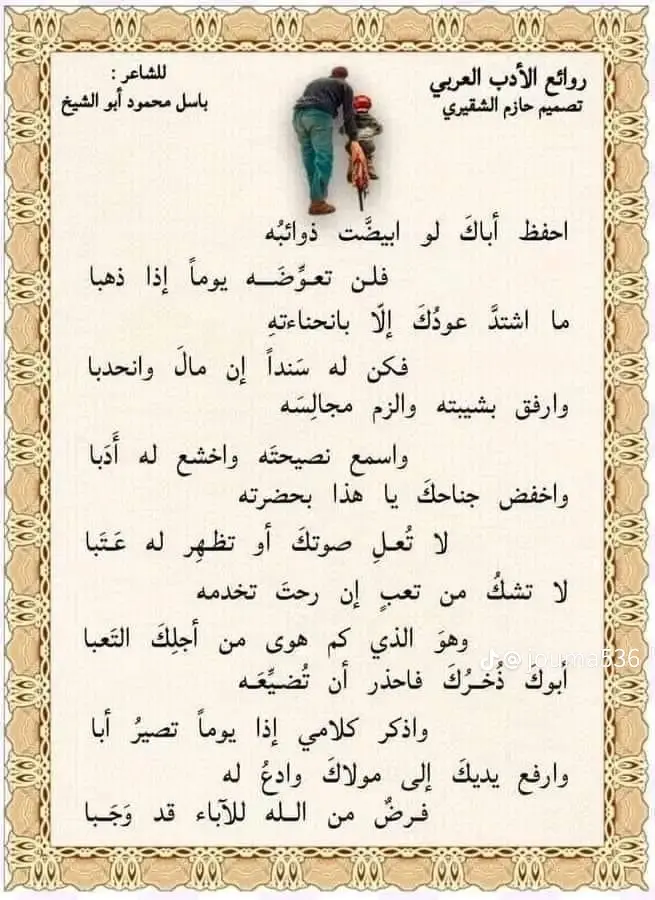 روائع الأدب العربي
تصميم حازم الشقيري
للشاعر :
باسل محمود أبو الشيخ
احفظ أباكَ لو ابيضَّت ذوائبُه
فلـن تعـوِّضَـــه يوماً إذا ذهبا
ما اشتدَّ عودُكَ إلّا بانحناءتهِ
فكن له سَنداً إن مالَ وانحدبا
وارفق بشيبته والزم مجالِسَه
واسمع نصيحتَه واخشع له أَدَبا
واخفض جناحكَ يا هذا بحضرته
لا تُعـلِ صوتكَ أو تظـهِر له عَـتَبا
لا تشكُ من تعبٍ إن رحتَ تخدمه
وهوَ الذي كم هوى من أجلِكَ التَعبا
أبوكَ ذُخـرُكَ فاحذر أن تُضـيِّعَـه
واذكر كلامي إذا يوماً تصيرُ أبا
وارفع يديكَ إلى مولاكَ وادعُ له
فـرضٌ من الـله للآباء قد وَجَـبا
@ jouma536